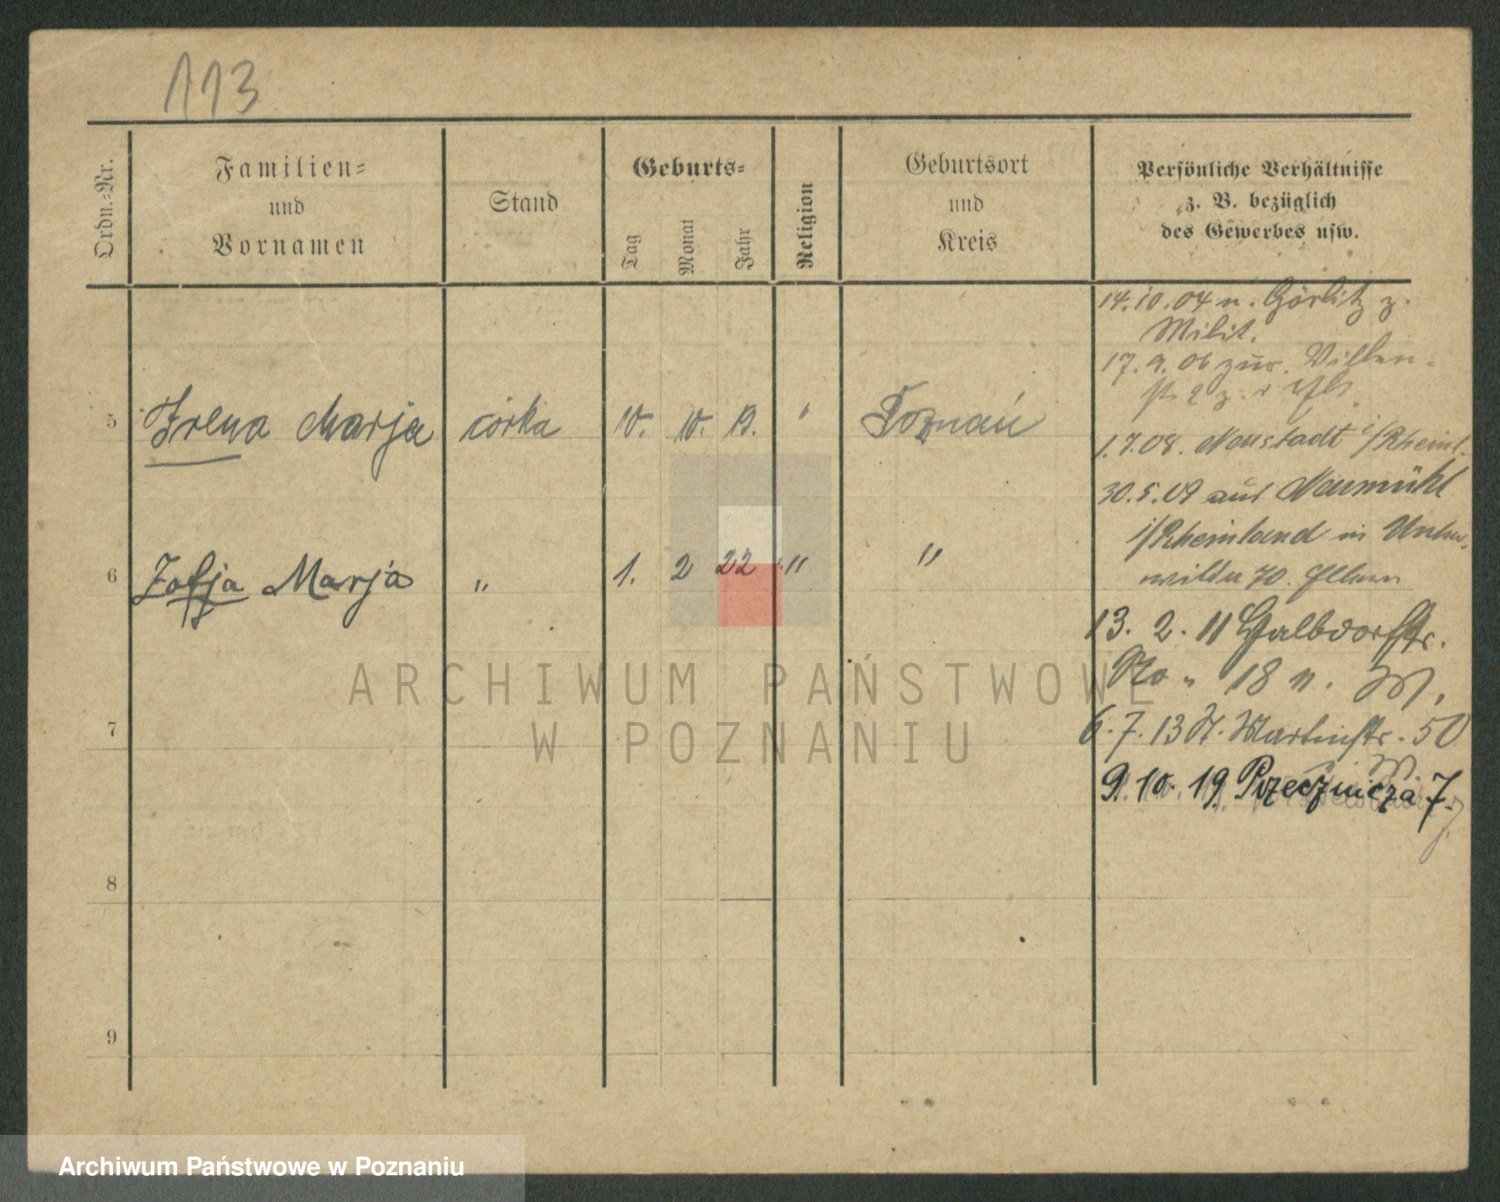 113
Ordn.-Nr.
Familien-
und
Vornamen
Stand
Geburts-
Tag
Monat
Jahr
Religion
Geburtsort
und
Kreis
Persönliche Verhältnisse
z. B. bezüglich
des Gewerbes usw.
14.10.04 n. Görlitz z.
Milit.
17.9.06 zur.
5 Irena Marja córka 10. 10. 19. " Poznań
1.7.08. Neustadt i/Rheinl.
30.5.09 aus Neumühl
i/Rheinland in
6 Zofja Marja " 1. 2 22 " "
70.
13. 2. 11
No " 18 n. W.
7
6.7.13 St. Martinstr. 50
W
9.10.19 Przecznica 7.
8
9
ARCHIWUM PAŃSTWOWE
W POZNANIU
Archiwum Państwowe w Poznaniu